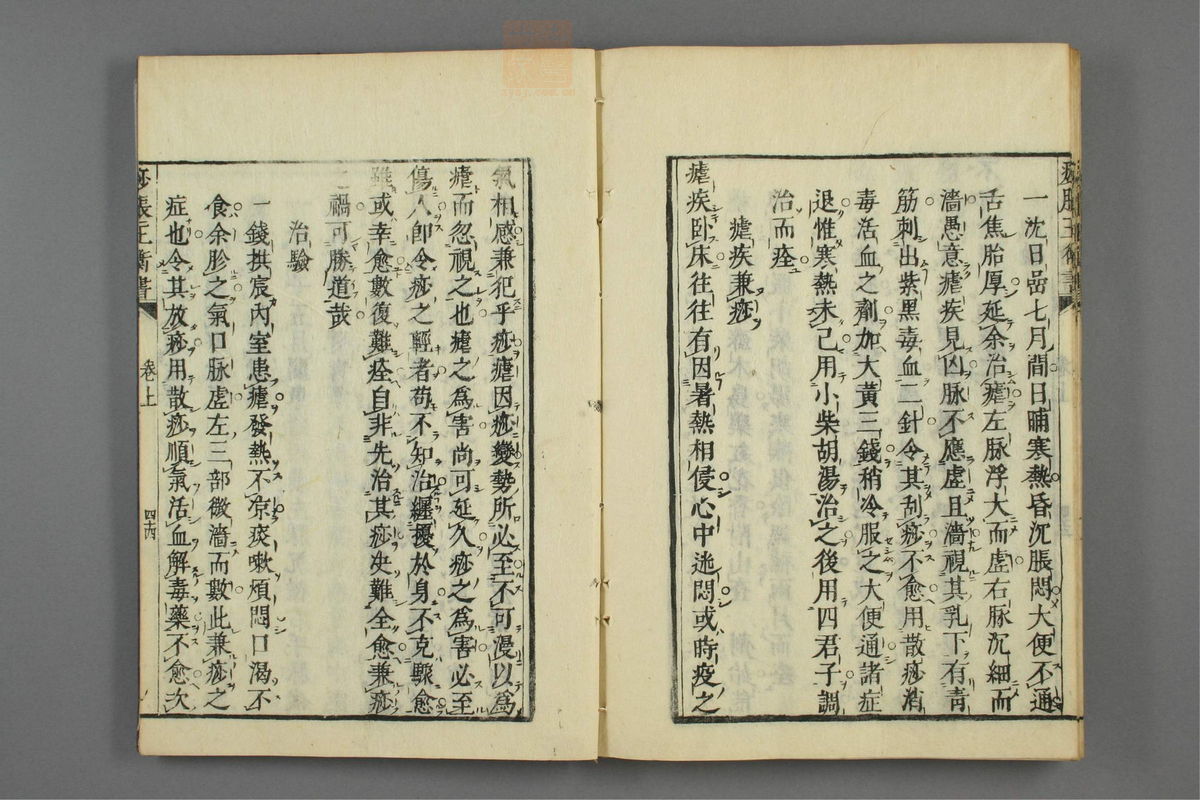 一沈日岳七月間日晡寒熱昏沉脹悶大便不通
舌焦胎厚延余治瘧左脉浮大而虛右脉沉細而
濇愚意瘧疾見凶脉不應虛且濇視其乳下有青
筋刺出紫黑毒血二針令其刮痧不愈用散痧消
毒活血之劑加大黃三錢稍冷服之大便通諸症
退惟寒熱未已用小柴胡湯治之後用四君子調
治而痊
瘧疾兼痧
瘧疾卧床往往有因暑熱相侵心中迷悶或時疫之
氣相感兼犯乎痧瘧因痧變勢所必至不可漫以為
瘧而忽視之也瘧之為害尚可延久痧之為害必至
傷人卽令痧之輕者苟不知治纏擾於身不克驟愈
雖或幸愈數復難痊自非先治其痧决難全愈兼痧
之禍可勝道哉
治驗
一錢拱宸內室患瘧發熱不凉痰嗽煩悶口渴不
食余胗之氣口脉虛左三部微濇而數此兼痧之
症也令其放痧用散痧順氣活血解毒藥不愈次
痧脹玉衡書
卷上
四十四